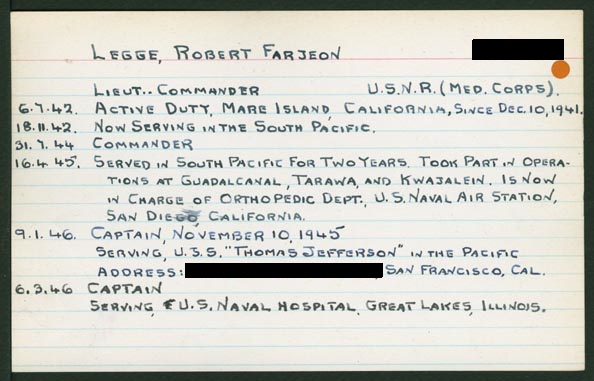 LEGGE, ROBERT FARJEON
LIEUT.. COMMANDER U.S.N.R. (MED. CORPS).
6.7.42. ACTIVE DUTY, MARE ISLAND, CALIFORNIA, SINCE DEC. 10, 1941.
18.11.42. NOW SERVING IN THE SOUTH PACIFIC.
31.7.44 COMMANDER
16.4.45. SERVED IN SOUTH PACIFIC FOR TWO YEARS. TOOK PART IN OPERA-
TIONS AT GUADALCANAL, TARAWA, AND KWAJALEIN. IS NOW
IN CHARGE OF ORTHOPEDIC DEPT., U.S. NAVAL AIR STATION,
SAN DIEGO, CALIFORNIA.
9.1.46. CAPTAIN, NOVEMBER 10, 1945
SERVING, U.S.S. "THOMAS JEFFERSON" IN THE PACIFIC
ADDRESS: , SAN FRANCISCO, CAL.
6.3.46 CAPTAIN
SERVING, U.S. NAVAL HOSPITAL, GREAT LAKES, ILLINOIS.